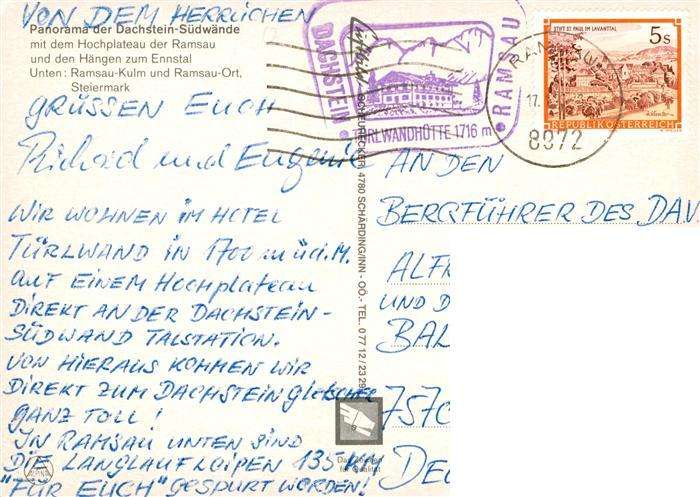 VON DEM HERRLICHEN
Panorama der Dachstein-Südwände
mit dem Hochplateau der Ramsau
und den Hängen zum Ennstal
Unten: Ramsau-Kulm und Ramsau-Ort,
Steiermark
GRÜSSEN EUCH
Richard und Eugenie
WIR WOHNEN IM HOTEL
TÜRLWAND IN 1700 m ü.d.M.
AUF EINEM HOCHPLATEAU
DIREKT AN DER DACHSTEIN-
SÜDWAND TALSTATION.
VON HIERAUS KOMMEN WIR
DIREKT ZUM DACHSTEINGLETSCHER
GANZ TOLL!
IN RAMSAU UNTEN SIND
DIE LANGLAUFLOIPEN 135 KM
"FÜR EUCH" GESPURT WORDEN!
4780 SCHÄRDING/INN - OÖ. - TEL. 0 77 12 / 23 29
DACHSTEIN • RAMSAU •
RLWANDHÜTTE 1716 m
RAMSAU
17.
8972
STIFT ST. PAUL IM LAVANTTAL
5 S
REPUBLIK ÖSTERREICH
AN DEN
BERGFÜHRER DES DAV
ALF
UND D
BAL
757
für Qualität